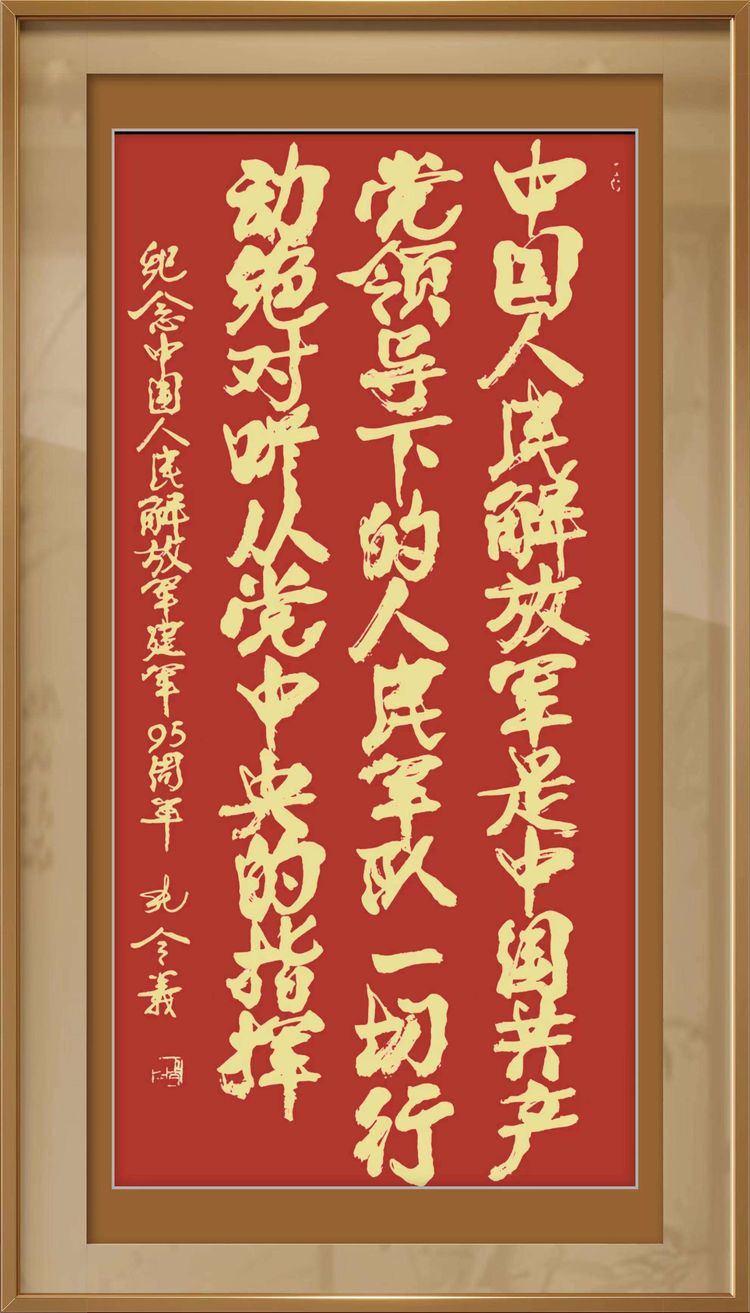 中国人民解放军是中国共产
党领导下的人民军队一切行
动绝对听从党中央的指挥
纪念中国人民解放军建军95周年 孔令義